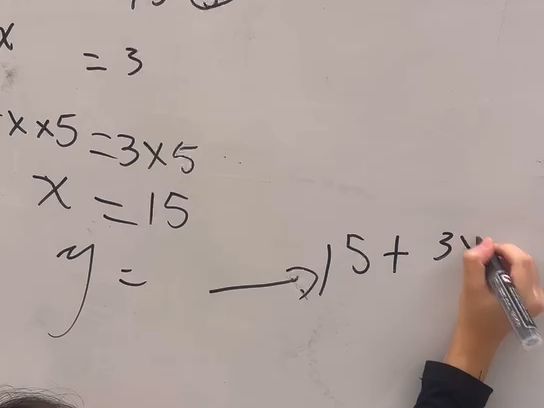 x
= 3
x × 5 = 3 × 5
x = 15
y = → 15 + 3y